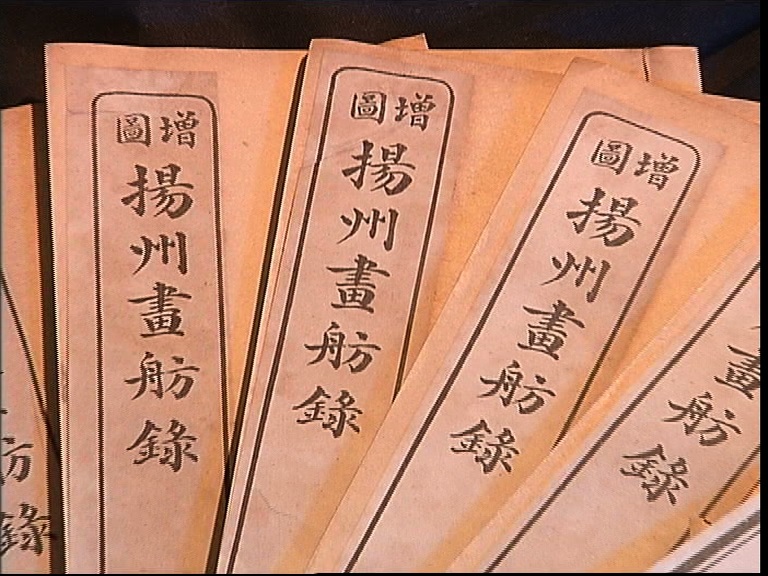 錄
增圖
揚州畫舫錄
增圖
揚州畫舫錄
增圖
揚州畫舫錄
畫舫錄